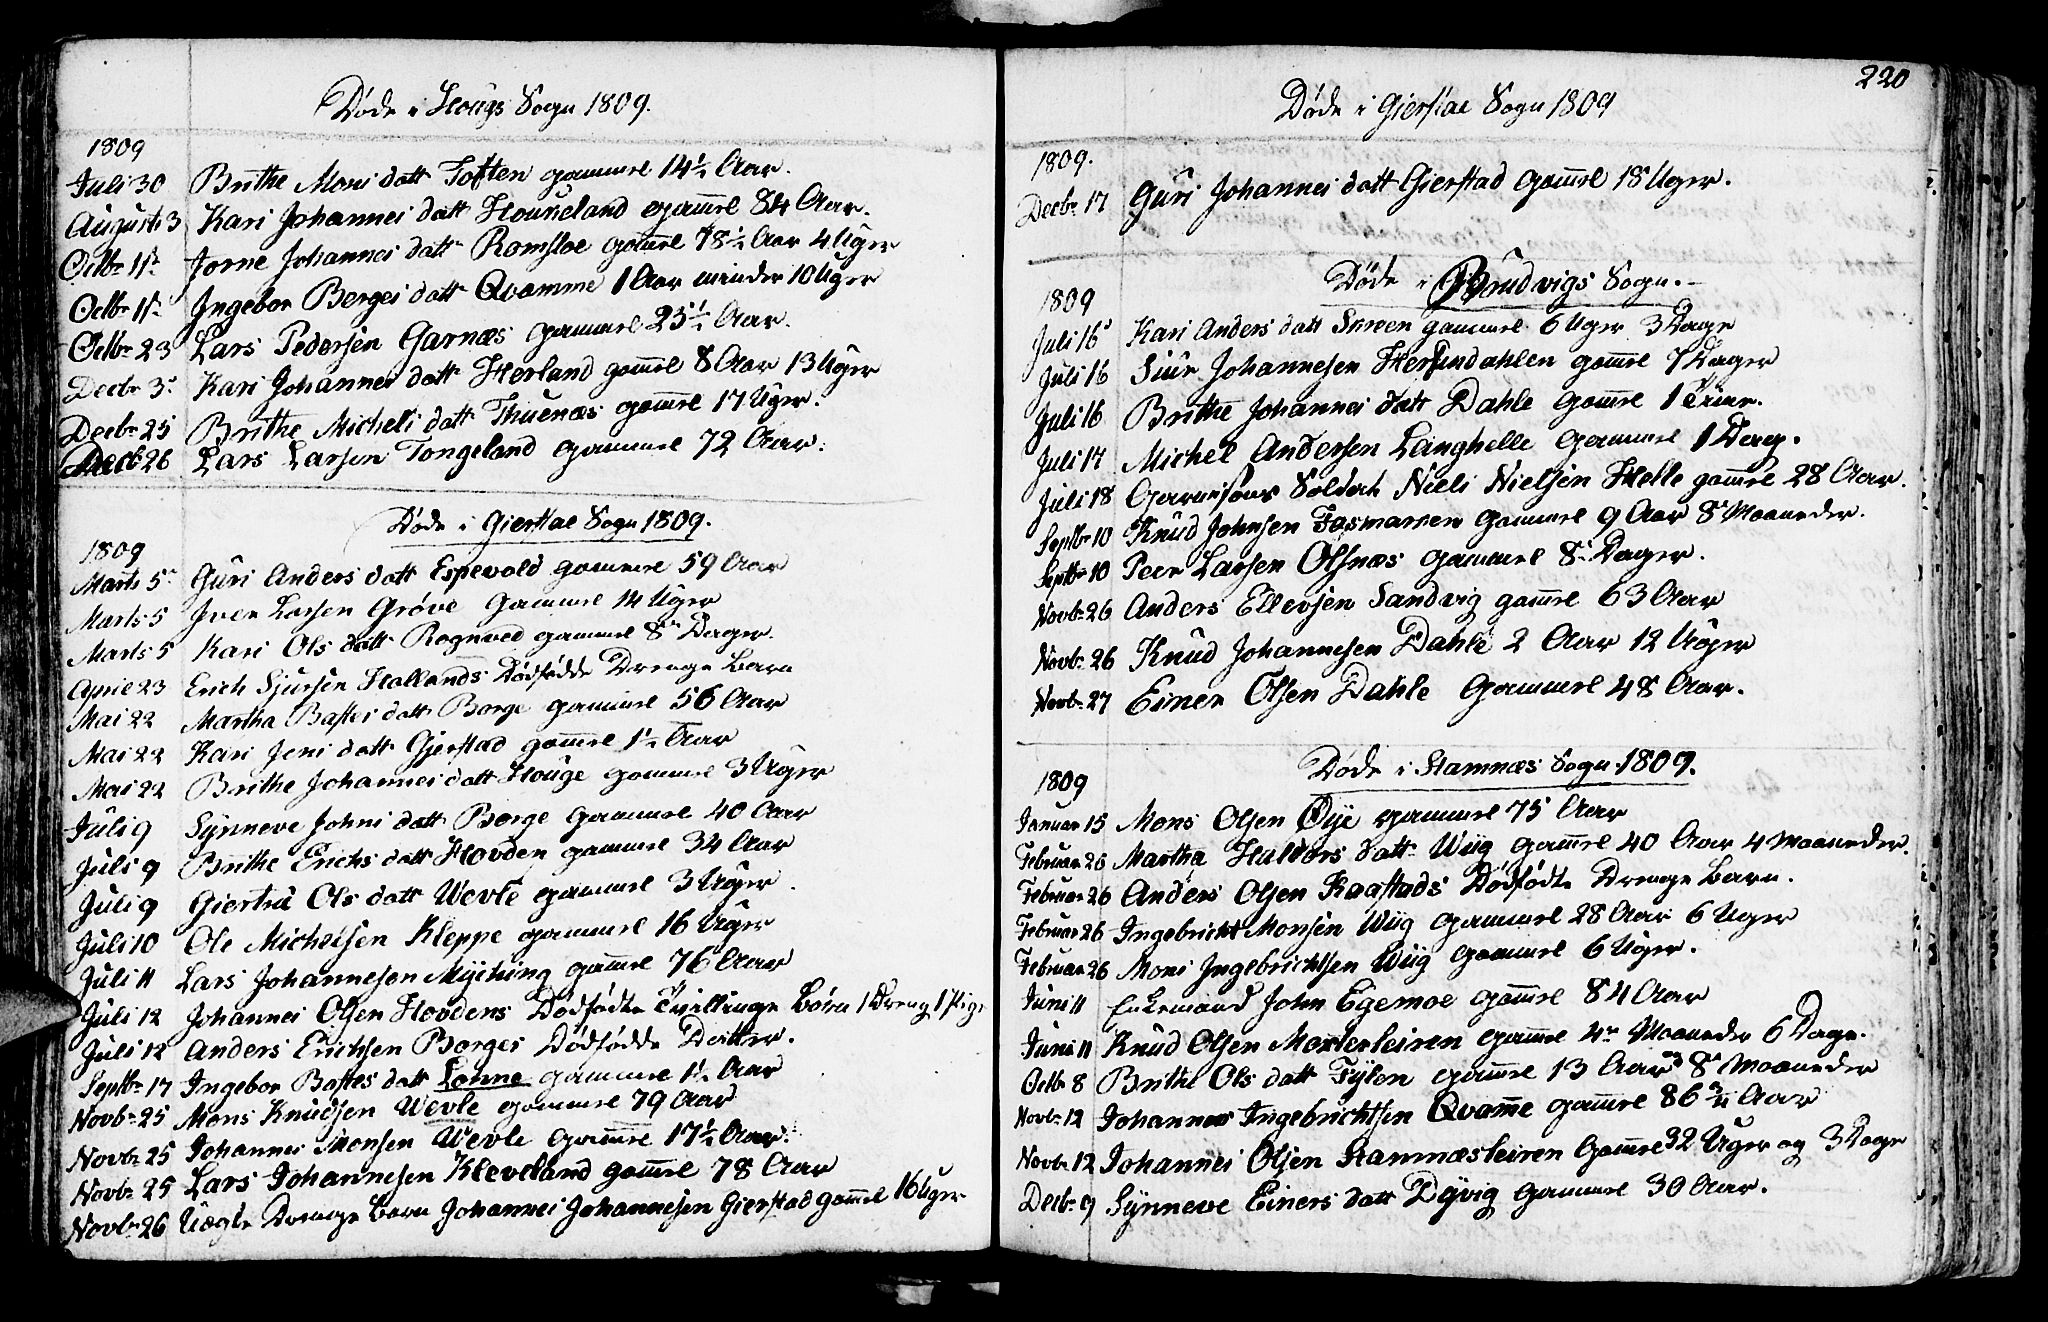 Døde i Hougs Sogn 1809.
1809
Juli 30 Brithe Mons datt Toften gammel 14½ Aar.
Augusti 3 Kari Johannes datt Houkeland gam̅el 84 Aar.
Octbr 15 Jorne Johannes datt Romsloe gam̅el 78½ Aar 4 Uger
Octbr 15 Ingebor Berges datt Qvamme 1 Aar minder 10 Uger
Octbr 23 Lars Pedersen Garnæs gammel 25½ Aar.
Decbr 3 Kari Johannes datt Herland gam̅el 8 Aar 13 Uger
Decbr 25 Brithe Michels datt Thuenæs gam̅el 17 Uger.
Decb 26 Lars Larsen Tongeland gammel 72 Aar.
Døde i Gierstae Sogn 1809.
1809
Marts 5 Guri Anders datt Espevold gammel 59 Aar
Marts 5 Iver Larsen Grøve gammel 14 Uger
Marts 5 Kari Ols datt Rognved gammel 8 Dager.
April 23 Erich Sjursen Hollands Dødfødde Drenge Barn
Mai 22 Martha Bastes datt Borge gammel 56 Aar
Mai 22 Kari Jens datt Gjerstad gam̅el 1½ Aar
Mai 22 Brithe Johannes datt Houge gammel 3 Uger
Juli 9 Synneve Johns datt Borge gammel 40 Aar
Juli 9 Brithe Erichs datt Hovden gammel 34 Aar
Juli 9 Giertru Ols datt Wevle gammel 3 Uger.
Juli 10 Ole Michelsen Kleppe gammel 16 Uger
Juli 11 Lars Johannesen Myching gam̅el 76 Aar
Juli 12 Johannes Olsen Hovdens Dødfødte Tvillinge Børn 1 Dreng 1 Pige
Juli 12 Anders Erichsen Borges Dødfødde Datter.
Septbr 17 Ingebor Bastes datt Lonne gammel 1½ Aar
Novbr 25 Mons Knudsen Wevle gammel 79 Aar
Novbr 25 Johannes Monsen Wevle gam̅el 17½ Aar.
Novbr 25 Lars Johannesen Kleveland gam̅el 78 Aar
Novbr 26 Uægte Drenge Barn Johannes Johannesen Gierstad gam̅el 16 Uger
220
Døde i Gierstae Sogn 1809
1809.
Decbr 17 Guri Johannes datt Gierstad gam̅el 18 Uger.
Døde i Brudvigs Sogn.
1809
Juli 16 Kari Anders datt gammel 6 Uger 3 Dage
Juli 16 Siur Johannesen Herfindahlen gam̅el 7 Dager
Juli 16 Brithe Johannes datt Dahle gam̅el 1 Time.
Juli 17 Michel Andersen Langhelle gammel 1 Dag.
Juli 18 Garnisons Soldat Niels Nielsen Helle gam̅el 28 Aar.
Septbr 10 Knud Johnsen Fosmarken gammel 9 Aar 8 Maaneder.
Septbr 10 Peer Larsen Olsnæs gammel 8 Dager.
Novbr 26 Anders Ellevsen Sandvig gam̅el 63 Aar
Novbr 26 Knud Johannesen Dahle 2 Aar 12 Uger
Novbr 27 Einer Olsen Dahle gammel 48 Aar.
Døde i Stamnæs Sogn 1809.
1809
Januar 15 Mons Olsen Øye gammel 75 Aar
Februar 26 Martha Haldors datt Wiig gam̅el 40 Aar 4 Maaneder.
Februar 26 Anders Olsen Raastads Dødfødte Drenge Barn.
Februar 26 Ingebricht Monsen Wiig gammel 28 Aar 6 Uger
Februar 26 Mons Ingebrichtsen Wiig gammel 6 Uger.
Juni 11 Enkemand John Egemoe gam̅el 84 Aar
Juni 11 Knud Olsen Mosterleiren gam̅el 4 Maaneder 6 Dage.
Octbr 8 Brithe Ols datt Fylen gam̅el 13 Aar 8 Maaneder
Novbr 12 Johannes Ingebrichtsen Qvam̅e gam̅el 86 Aar
Novbr 12 Johannes Olsen Stamnæsleiren gam̅el 32 Uger og 3 Dage
Decbr 9 Synneve Einers datt Dyvig gammel 30 Aar.